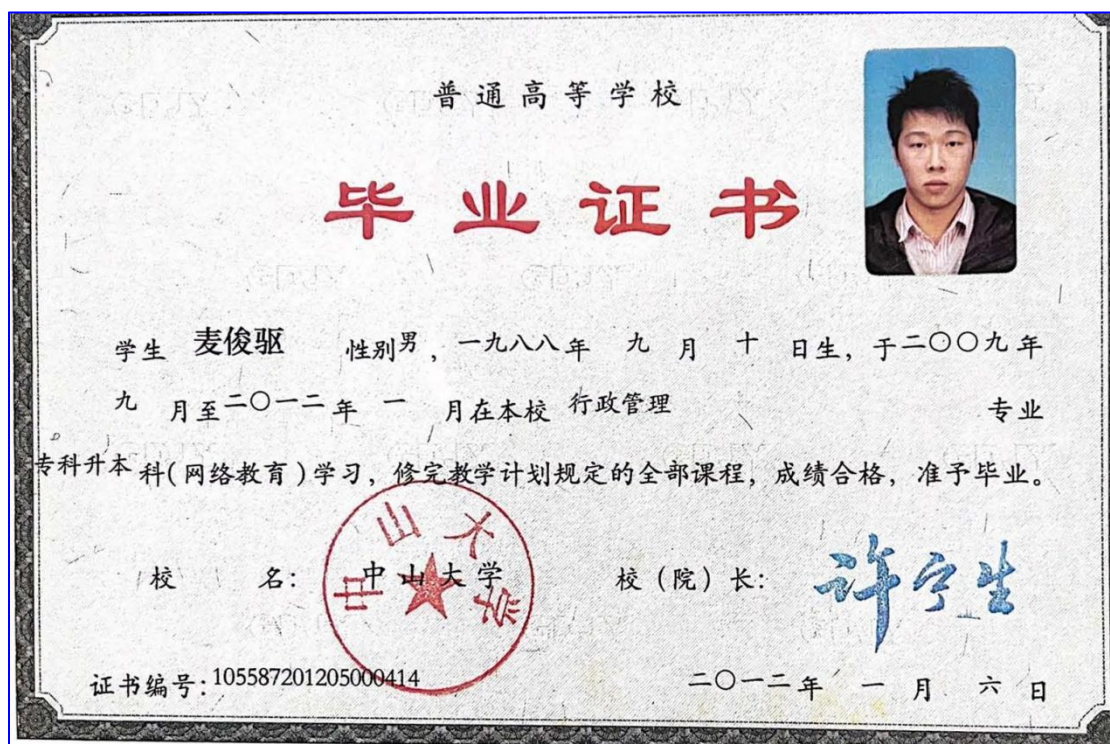 普通高等学校
毕业证书
学生 麦俊驱 性别男，一九八八年 九 月 十 日生，于二〇〇九年
九 月至二〇一二年 一 月在本校 行政管理 专业
专科升本 科(网络教育)学习，修完教学计划规定的全部课程，成绩合格，准予毕业。
校 名： 中山大学 校（院）长： 许宁生
中山大学
证书编号：105587201205000414 二〇一二年 一 月 六 日